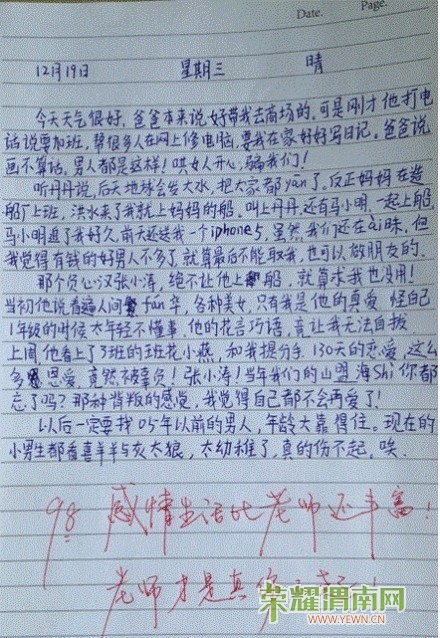 Date.
Page.
12月19日 星期三 晴
今天天气很好,爸爸本来说好带我去商场的,可是刚才他打电
话说要加班,帮很多人在网上修电脑,要我在家好好写日记。爸爸说
画不算话,男人都是这样!哄女人开心,骗我们!
听丹丹说,后天地球会发大水,把大家都yān了,反正妈妈在造
船厂上班,洪水来了我就上妈妈的船。叫上丹丹,还有马小明,一起上船,
马小明追了我好久,前天还送我一个iphone5,虽然我们还在ài昧,但
我觉得有钱的好男人不多了,就算最后不能取我,也可以做朋友的。
那个负心汉张小涛,绝不让他上船,就算求我也没用!
当初他说看遍人间fán华,各种美女,只有我是他的真爱,怪自己
1年级的时候太年轻不懂事,他的花言巧语,竟让我无法自拔
上周他看上了3班的班花小燕,和我提分手,130天的恋爱,这么
多恩爱,竟然被辜负!张小涛!当年我们的山盟海Shi你都
忘了吗?那种背叛的感觉,我觉得自己都不会再爱了!
以后一定要找05年以前的男人,年龄大靠得住。现在的
小男生都看喜羊羊与灰太狼,太幼稚了,真的伤不起,唉
98 感情生活比老师还丰富!
老师才是真伤不起!
荣耀渭南网
WWW.YEWN.CN